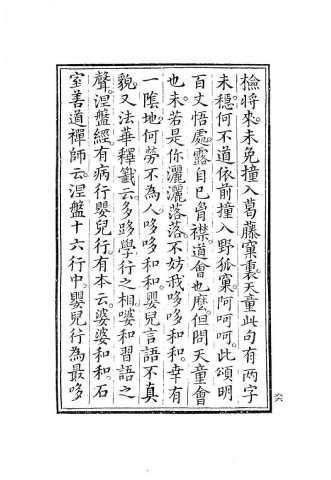 檢將來未免撞入葛藤窠裏天童此句有两字
未穩何不道依前撞入野狐窠阿呵呵此頌明
百丈悟處露自已胷襟道會也麽但問天童會
也未若是你灑灑落落不妨我哆哆和和幸有
一隂地何勞不為人哆哆和和嬰兒言語不真
貌又法華釋籖云多跢學行之相㗑和習語之
聲涅盤經有病行嬰兒行有本云婆婆和和石
室善道禪師云涅盤十六行中嬰兒行為最哆
六六